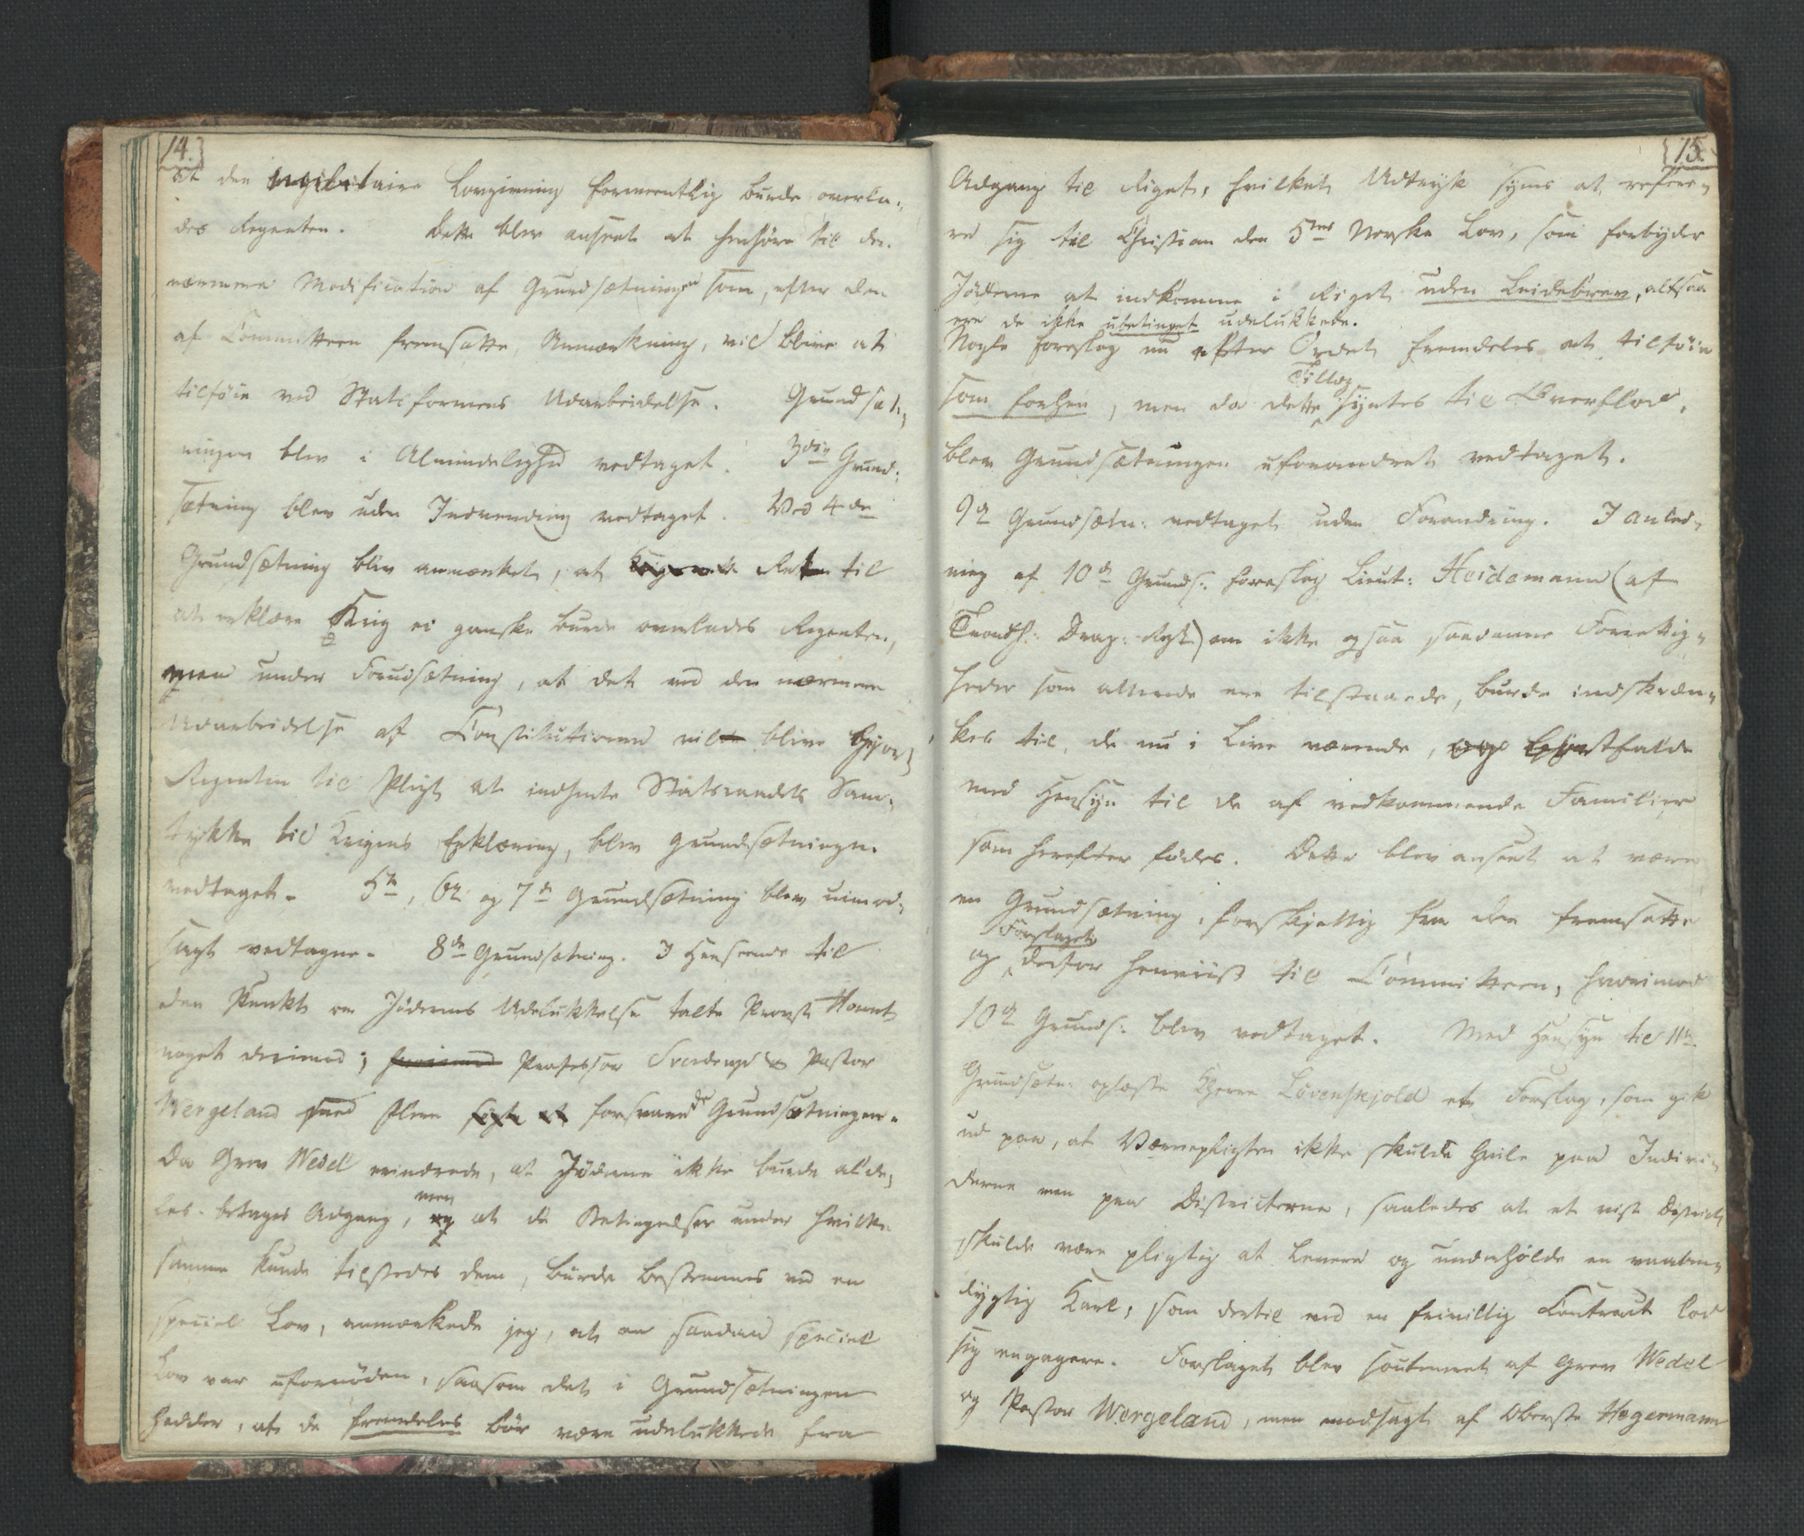 14.
at den militaire Lovgivning formeentlig burde overla-
des Regenten. Dette blev anseet at henhöre til de
nærmere Modificationer af Grundsætningen som, efter den
af Committeen fremsatte Anmærkning, vil blive at
tilföie ved Statsformens Udarbeidelse. Grundsæt-
ningen blev i Almindelighed vedtaget. 3die Grund-
sætning blev uden Indvending vedtaget. Ved 4de
Grundsætning blev anmærket, at Ret til
at erklære Krig ei ganske burde overlades Regenten,
men under Forudsætning, at det ved den nærmere
Udarbeidelse af Constitutionen vil blive gjort
Regenten til Pligt at indhente Statsraadets Sam-
tykke til Krigens Erklæring, blev Grundsætningen
vedtaget. 5te, 6te og 7de Grundsætning blev uimod-
sagt vedtagne. 8de Grundsætning. I Henseende til
den Punkt om Jödernes Udelukkelse talte Provst Hount
noget derimod; Professor Sverdrup & Pastor
Wergeland med flere forsvarede Grundsætningen.
Da Grev Wedel erindrede, at Jöderne ikke burde alde-
les betages Adgang, men at de Betingelser under hvilke
samme kunde tilstedes dem, burde bestemmes ved en
speciel Lov, anmærkede jeg, at en saadan speciel
Lov var ufornöden, saasom det i Grundsætningen
hedder, at de fremdeles bör være udelukkede fra
15.
Adgang til Riget, hvilket Udtryk synes at refere-
re sig til Christian den 5tes Norske Lov, som forbyder
Jöderne at indkomme i Riget uden Leidebrev, altsaa
ere de ikke ubetinget udelukkede.
Nogle foreslog nu efter Ordet fremdeles at tilföie
som forhen, men da dette Tillæg syntes til Overflod,
blev Grundsætningen uforandret vedtaget.
9de Grundsætn: vedtaget uden Forandring. I anled-
ning af 10de Grunds: foreslog Lieut: Heidemann (af
Trondh: Drag: Regt) om ikke ogsaa saadanne Forrettig-
heder som allerede ere tilstaaede, burde indskræn-
kes til de nu i Live værende, og bortfalde
med Hensyn til de af vedkommende Familier
som herefter födes. Dette blev anseet at være
en Grundsætning, forskjellig fra den fremsatte
og Forslaget derfor henviist til Committeen, hvorimod
10de Grunds: blev vedtaget. Med Hensyn til 11te
Grundsætn: oplæste Herr Lövenskjold et Forslag, som gik
ud paa, at Værnepligten ikke skulde hvile paa Indivi-
derne men paa Districterne, saaledes at et vist District
skulde være pligtig at levere og underholde en vaaben-
dygtig Karl, som dertil ved en frivillig Contract lod
sig engagere. Forslaget blev soutineret af Grev Wedel
og Pastor Wergeland, men modsagt af Oberste Hegermann